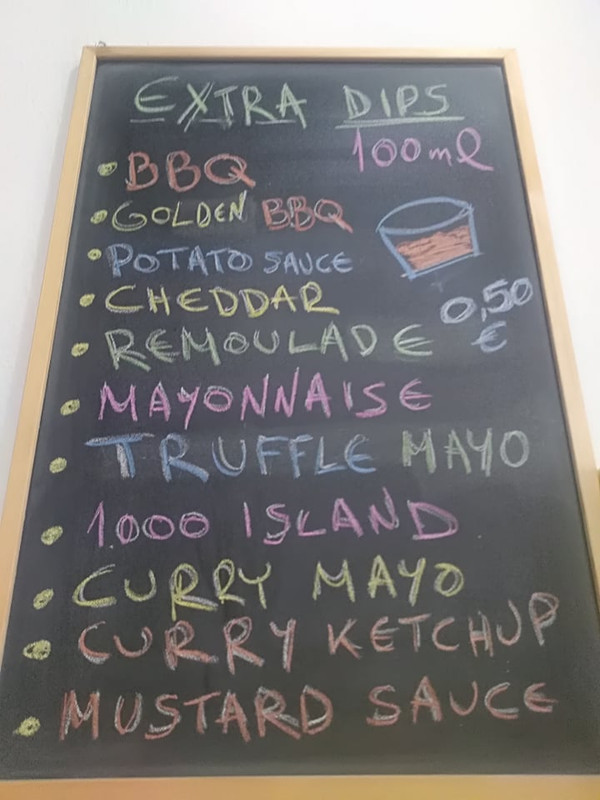 EXTRA DIPS
100ml
• BBQ
• GOLDEN BBQ
• POTATO SAUCE
• CHEDDAR
0,50
€
• REMOULADE
• MAYONNAISE
• TRUFFLE MAYO
• 1.000 ISLAND
• CURRY MAYO
• CURRY KETCHUP
• MUSTARD SAUCE